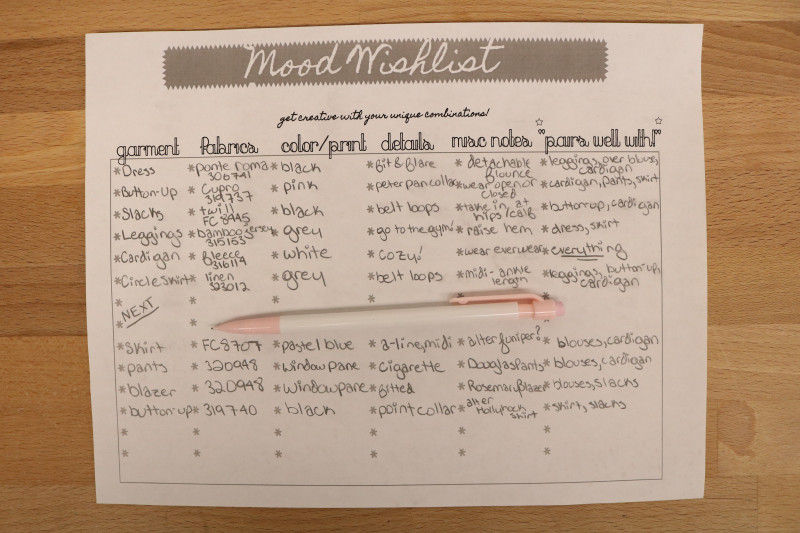 Mood Wishlist
get creative with your unique combinations!
garment fabrics color/print details misc notes "pairs well with!"
*Dress *ponte roma 306741 *black *fit & flare *detachable flounce *leggings, over blous, cardigan
*Button-Up *Cupro 319737 *pink *peter pan collar *wear open or closed *cardigan, pants, skirt
*Slacks *twill FC8445 *black *belt loops *take in, at hips/calf *button-up, cardigan
*Leggings *bamboo jersey 315153 *grey *go to the gym! *raise hem *dress, skirt
*Cardigan *fleece 316119 *white *cozy! *wear everwear *everything
*Circle Skirt *linen 323012 *grey *belt loops *midi-ankle length *leggings, button-up, cardigan
* * * *
*NEXT
*Skirt *FC8707 *pastel blue *a-line, midi *alter Juniper? *blouses, cardigan
*pants *320948 *windowpane *cigarette *Douglas Pants *blouses, cardigan
*blazer *320948 *windowpane *fitted *Rosemary Blazer *blouses, slacks
*button-up *319740 *black *point collar *alter Hollyrock shirt *skirt, slacks
* * * * * *
* * * * * *